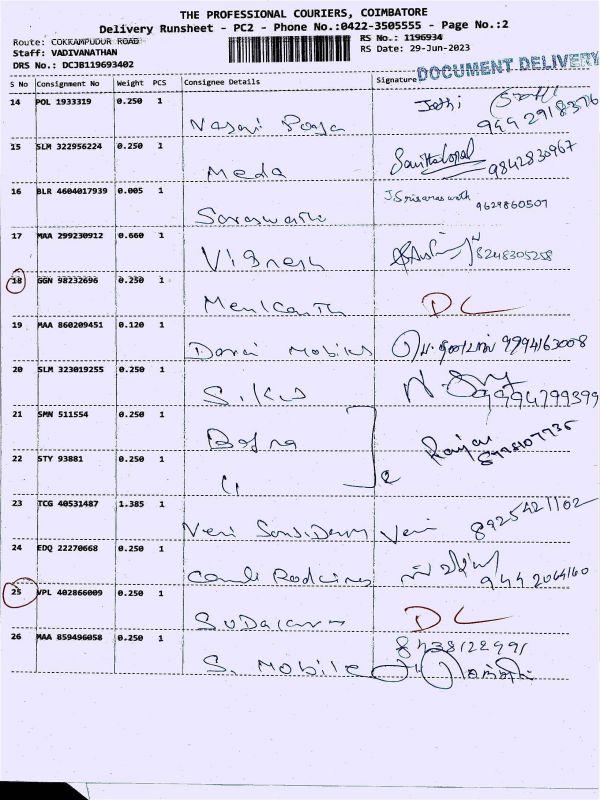 THE PROFESSIONAL COURIERS, COIMBATORE
Delivery Runsheet - PC2 - Phone No.:0422-3505555 - Page No.:2
Route: COKKAMPUDUR ROAD
RS No.: 1196934
Staff: VADIVANATHAN
RS Date: 29-Jun-2023
DRS No.: DCJB119693402
DOCUMENT DELIVERY
S No Consignment No Weight PCS Consignee Details Signature
14 POL 1933319 0.250 1
9442918376
15 SLM 322956224 0.250 1 Meda
9842830967
16 BLR 4604017939 0.005 1 Saraswathi
9629860507
17 MAA 299230912 0.660 1 Vignesh
8248305258
18 GGN 98232696 0.250 1 DL
19 MAA 860209451 0.120 1 Mobiles
9994163008
20 SLM 323019255 0.250 1
9994799399
21 SMN 511554 0.250 1
22 STY 93881 0.250 1 2
23 TCG 40531487 1.385 1 Veni
8925421102
24 EDQ 22270668 0.250 1
9442064160
25 VPL 402866009 0.250 1 DL
26 MAA 859496058 0.250 1 S. Mobile
8438122991